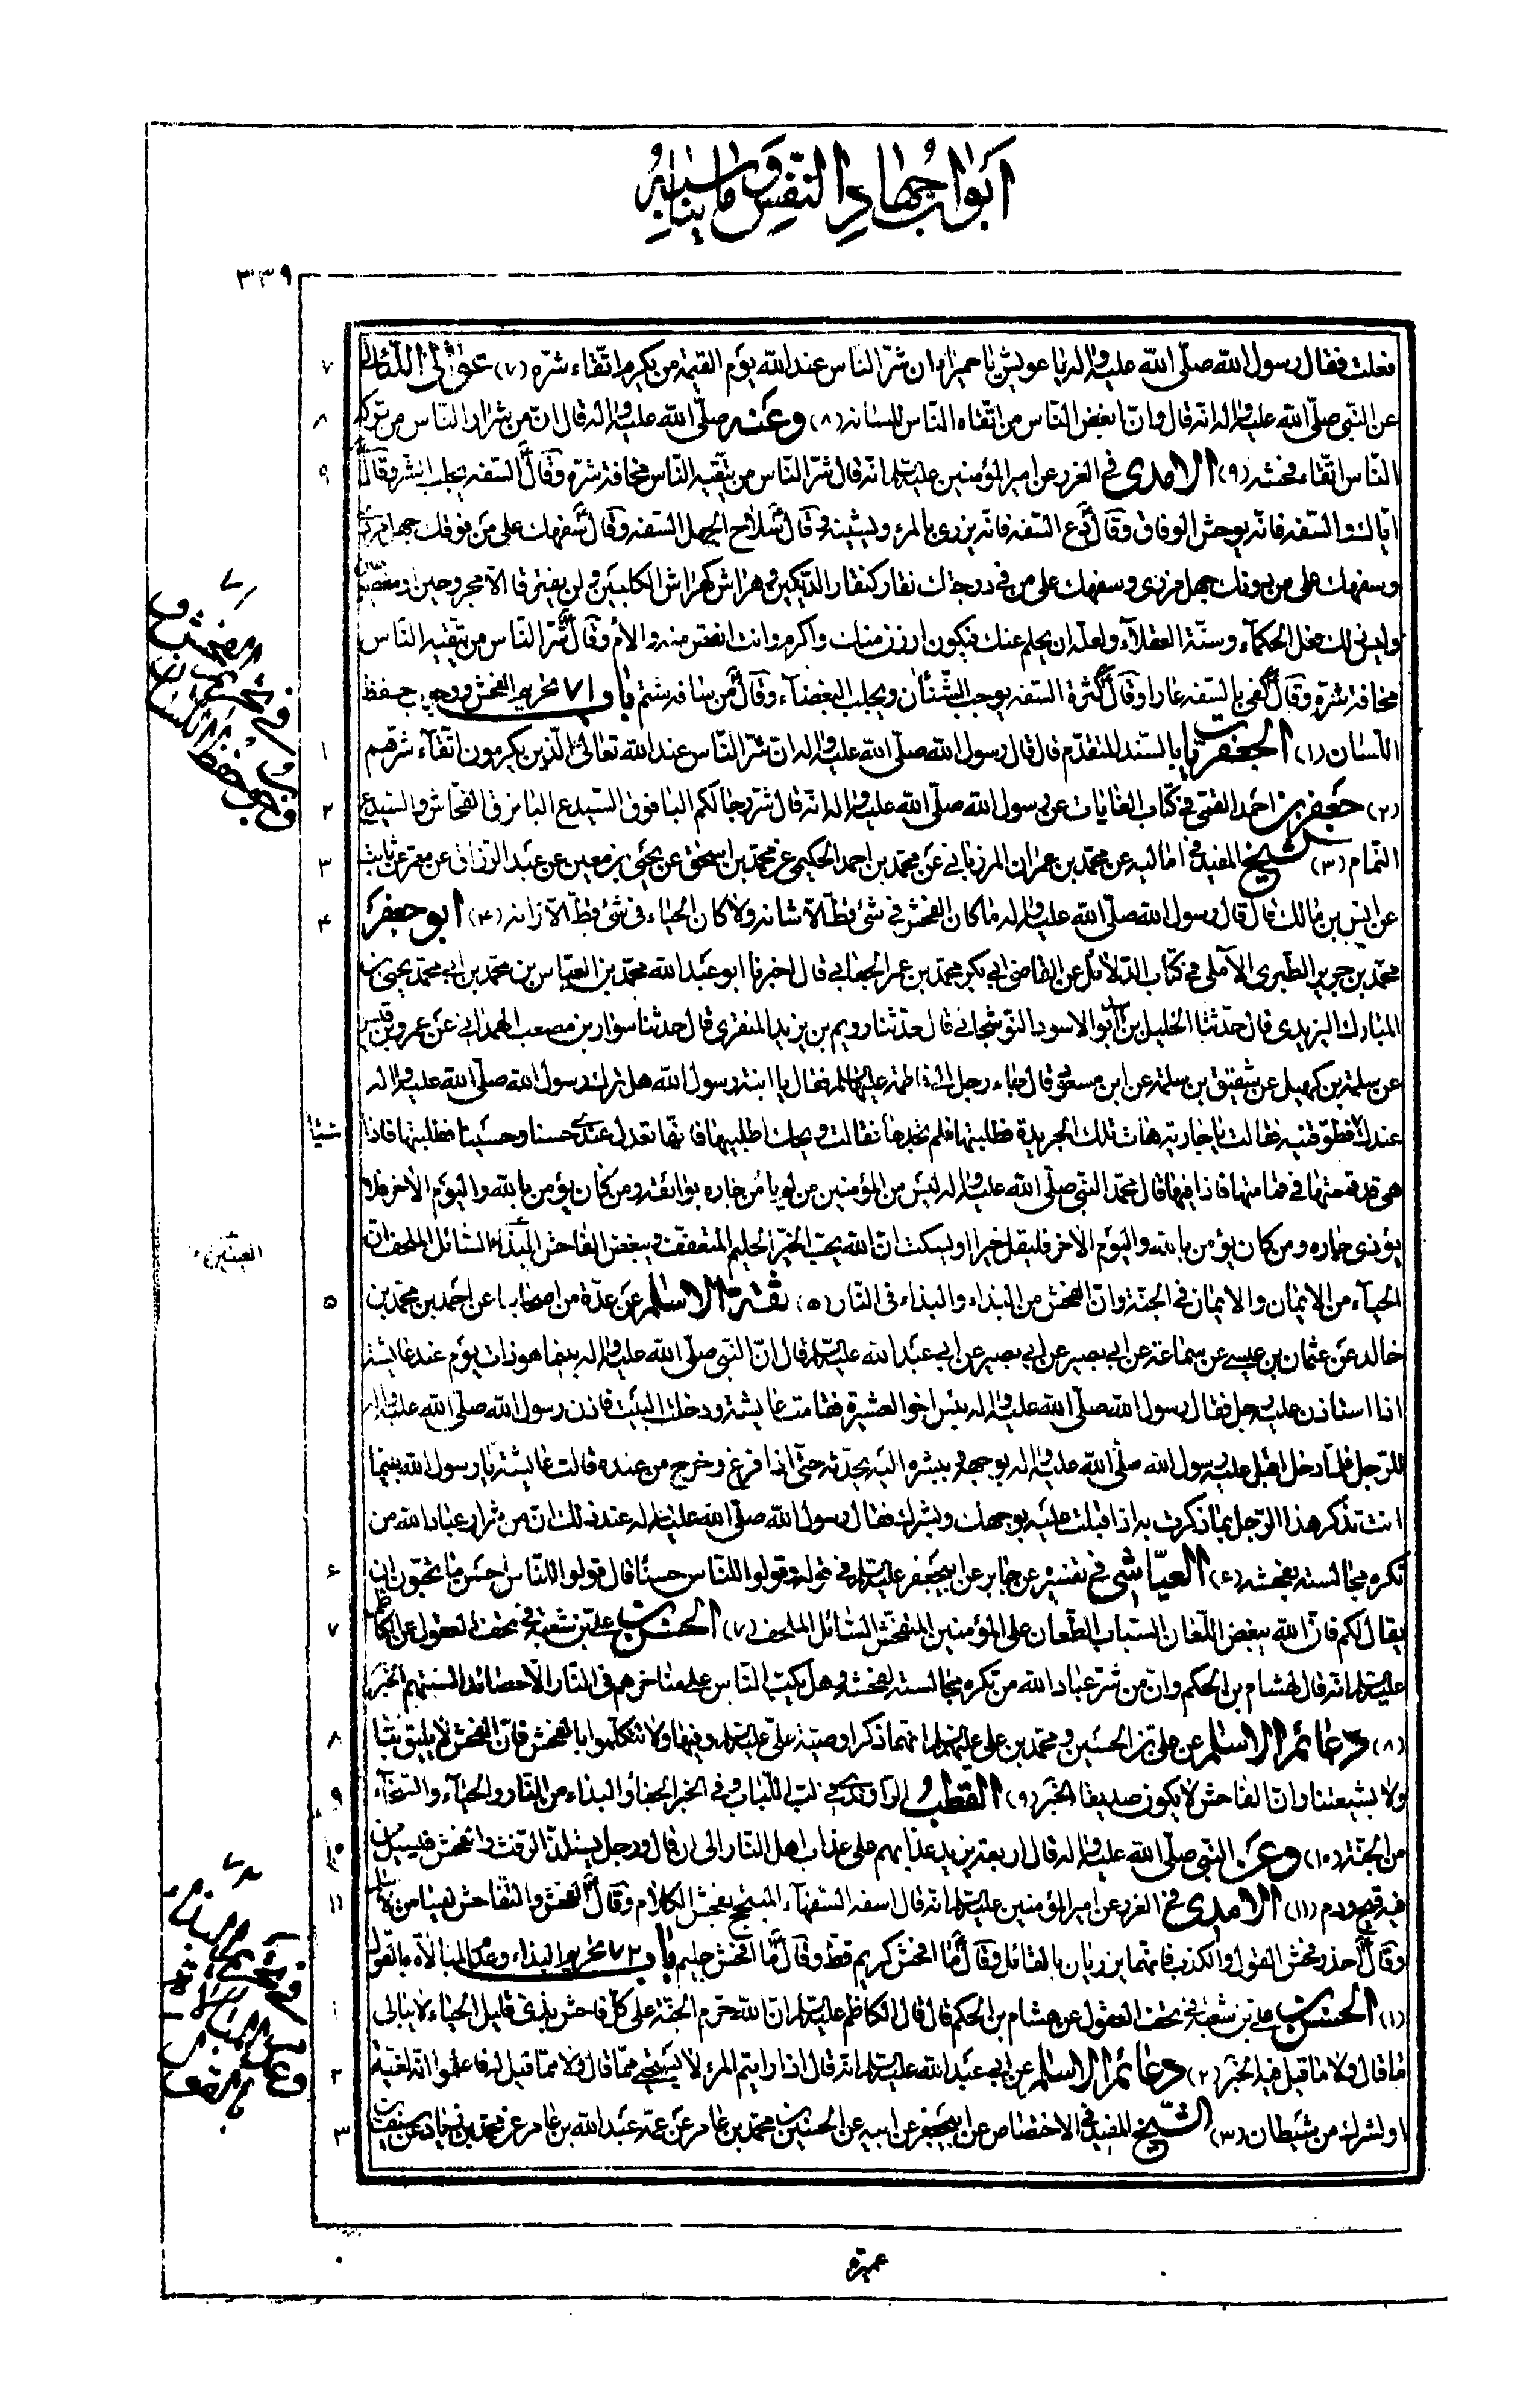 ابواب جهاد النفس وما يناسبه
٣٣٩
فعلت فقال رسول الله صلّى الله عليه واله يا عويش يا حميراء ان شرّ الناس عند الله يوم القيمة من يكرم اتّقاء شرّه (٧) عوالى اللئالى ٧
عن النّبى صلّى الله عليه واله انه قال وانّ ابغض النّاس من اتّقاه النّاس للسانه (٨) وعنه صلّى الله عليه واله قال انّ من شرار النّاس من تركه ٨
النّاس اتّقاء فحشه (٩) الامدى فى الغرر عن امير المؤمنين عليه السلام انّه قال شرّ النّاس من يتّقيه النّاس مخافة شرّه وقال السّفه يجلب الشّر وقال ٩
ايّاك والسّفه فانّه يوحش الوفاق وقال دع السّفه فانّه يزرى بالمرء ويشينه وقال سلاح الجهل السّفه وقال سفهك على من فوقك جهل مرد
وسفهك على من دونك جهل مزرى وسفهك على من فى درجتك نقار كنقار الديكين وهراش كهراش الكلبين ولن يفترقا الّا مجروحين او مفضوحين
وليس ذلك فعل الحكمآء وسنّة العقلآء ولعلّه ان يحلم عنك فيكون ارزن منك واكرم وانت انقص منه والأم وقال شرّ النّاس من يتّقيه النّاس
مخافة شرّه وقال كفى بالسّفه عارا وقال كثرة السّفه يوجب الشّنآن ويجلب البغضآء وقال من سافه شتم باب ٧١ تحريم الفحش ووجوب حفظ
اللّسان (١) الجعفريّات بالسّند المتقدّم قال قال رسول الله صلّى الله عليه واله انّ شرّ النّاس عند الله تعالى الّذين يكرمون اتّقآء شرّهم ١
(٢) جعفر بن احمد القمّى فى كتاب الغايات عن رسول الله صلّى الله عليه واله انّه قال شرّ رجالكم البافوق السّيدع البانزق الفحّاش والسّيدع ٢
النّمام (٣) الشيخ المفيد فى اماليه عن محمّد بن عمران المرزبانى عن محمّد بن احمد الحكيمى عن محمّد بن اسحق عن يحيى بن معين عن عبد الرّزاق عن معمر عن ثابت ٣
عن انس بن مالك قال قال رسول الله صلّى الله عليه واله ما كان الفحش فى شئ قطّ الّا شانه ولا كان الحياء فى شئ قطّ الّا زانه (٤) ابو جعفر ٤
محمّد بن جرير الطّبرى الآملى فى كتاب الدلائل عن القاضى ابى بكر محمّد بن عمر الجعابى قال اخبرنا ابو عبد الله محمّد بن العبّاس بن محمّد بن ابى محمّد يحيى بن
المبارك اليزيدى قال حدّثنا الخليل بن اسد ابو الاسود النّوشجانى قال حدّثنا رويم بن يزيد المنقرى قال حدثنا سوار بن مصعب الهمدانى عن عمرو بن قيس
عن سلمة بن كهيل عن شقيق بن سلمة عن ابن مسعود قال جاء رجل الى فاطمة عليها السلام فقال يا ابنة رسول الله هل ترك رسول الله صلّى الله عليه واله
عندك تطوّقينيه فقالت يا جارية هات تلك الجريدة فطلبتها فلم تجدها فقالت ويحك اطلبيها فانّها تعدل عندى حسنا وحسينا فطلبتها فاذا شيئا
هى قد قمّمتها فى قمامتها فاذا فيها قال محمّد النبى صلّى الله عليه واله ليس من المؤمنين من لم يامن جاره بوائقه ومن كان يؤمن بالله واليوم الآخر فلا
يؤذى جاره ومن كان يؤمن بالله واليوم الآخر فليقل خيرا او ليسكت انّ الله يحبّ الخيّر الحليم المتعفّف ويبغض الفاحش البذّاء السّائل الملحف انّ
الحيآء من الايمان والايمان فى الجنّة وانّ الفحش من البذاء والبذاء فى النّار (٥) ثقة الاسلام عن عدّة من اصحابنا عن احمد بن محمّد بن ٥
خالد عن عثمان بن عيسى عن سماعة عن ابى بصير عن ابى بصير عن ابى عبد الله عليه السلام قال انّ النّبى صلّى الله عليه واله بينما هو ذات يوم عند عايشة
اذا استاذن عليه رجل فقال رسول الله صلّى الله عليه واله بئس اخو العشيرة فقامت عايشة ودخلت البيت فاذن رسول الله صلّى الله عليه واله
للرّجل فلمّا دخل اقبل عليه رسول الله صلّى الله عليه واله بوجهه وبشره اليه يحدّثه حتّى اذا فرغ وخرج من عنده قالت عايشة يا رسول الله بينما
انت تذكر هذا الرّجل بما ذكرت به اذ اقبلت عليه بوجهك وبشرك فقال رسول الله صلّى الله عليه واله عند ذلك انّ من شرار عباد الله من
تكره مجالسته لفحشه (٦) العيّاشى فى تفسيره عن جابر عن ابيجعفر عليه السلام فى قوله وقولوا للنّاس حسنًا قال قولوا للنّاس احسن ما تحبّون ان ٦
يقال لكم فانّ الله يبغض اللّعان السّباب الطّعان على المؤمنين المتفحّش السّائل الملحف (٧) الحسن بن علىّ بن شعبة فى تحف العقول عن الكاظم ٧
عليه السلام انه قال لهشام بن الحكم وانّ من شرّ عباد الله من تكره مجالسته لفحشه وهل يكبّ النّاس على مناخرهم فى النّار الّا حصائد السنتهم الخبر
(٨) دعائم الاسلام عن علىّ بن الحسين ومحمّد بن على عليهما السلام انّهما ذكرا وصيّة علىّ عليه السلام وفيها ولا تتكلّموا بالفحش فانّ الفحش لا يليق بنا ٨
ولا بشيعتنا وانّ الفاحش لا يكون صديقا الخبر (٩) القطب الرّاوندى فى لبّ اللّباب وفى الخبر الجفاء والبذاء من النّار والحيآء والسّخآء ٩
من الجنّة (١٠) وعن النّبى صلّى الله عليه واله قال اربعة يزيد عذابهم على عذاب اهل النّار الى ان قال ورجل يستلذّ الرّفث والفحش فيسيل من ١٠
فيه قيح ودم (١١) الامدى فى الغرر عن امير المؤمنين عليه السلام انّه قال اسفه السّفهآء المتبجّح بفحش الكلام وقال الفحش والتّفاحش ليسا من الاسلام ١١
وقال احذر فحش القول والكذب فانّهما يزريان بالقائل وقال ما افحش كريم قطّ وقال ما افحش حليم باب ٧٢ تحريم البذاء وعدم المبالاة بالقول
(١) الحسن بن علىّ بن شعبة فى تحف العقول عن هشام بن الحكم قال قال الكاظم عليه السلام انّ الله حرّم الجنّة على كلّ فاحش بذىّ قليل الحياء لا يبالى ١
ما قال ولا ما قيل فيه الخبر (٢) دعائم الاسلام عن ابى عبد الله عليه السلام انه قال اذا رايتم المرء لا يستحيى ممّا قال ولا ممّا قيل له فاعلموا انّه لغيّة ٢
او لشرك من شيطان (٣) الشّيخ المفيد فى الاختصاص عن ابيجعفر عن ابيه عن الحسين بن محمّد بن عامر عن عمّه عبد الله بن عامر عن محمّد بن زياد عن سيف بن ٣
عميرة
٧١
فى تحريم الفحش و
وجوب حفظ اللسان
العنترىّ
٧٢
فى تحريم البذاء
وعدم المبالاة
بالقول